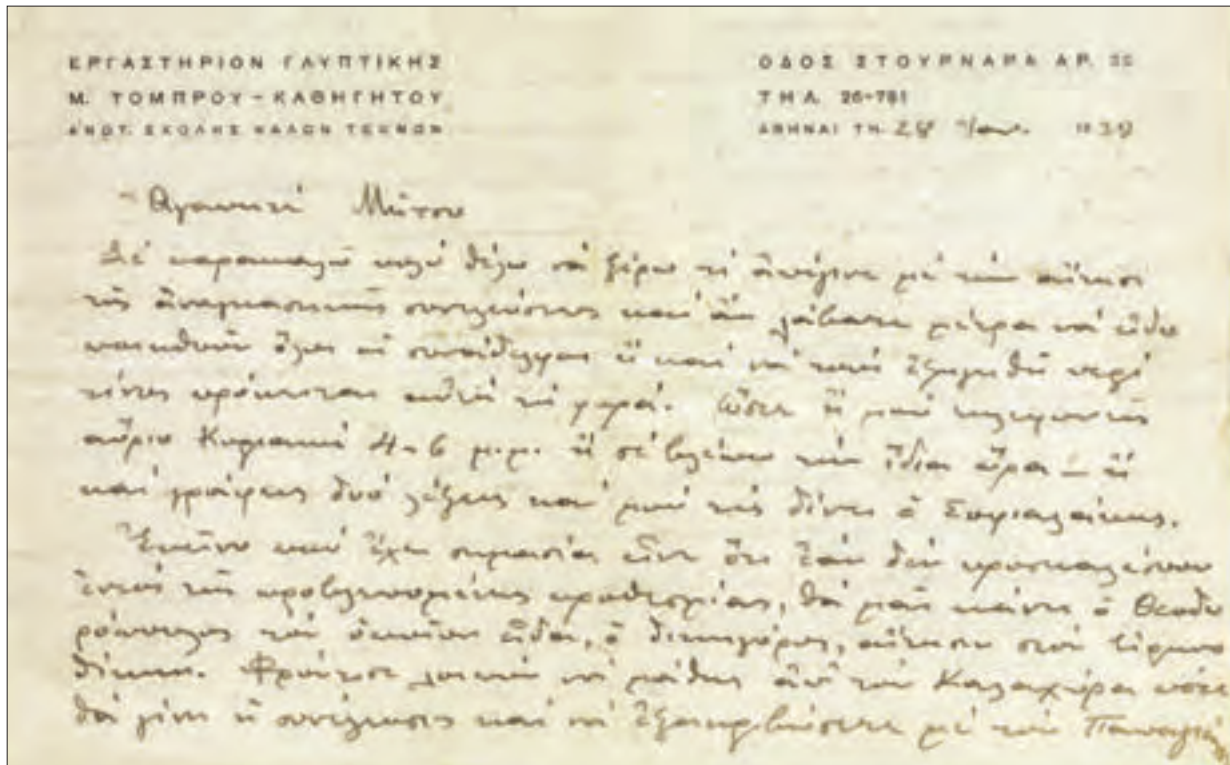 ΕΡΓΑΣΤΗΡΙΟΝ ΓΛΥΠΤΙΚΗΣ
Μ. ΤΟΜΠΡΟΥ - ΚΑΘΗΓΗΤΟΥ
ΑΝΩΤ. ΣΧΟΛΗΣ ΚΑΛΩΝ ΤΕΧΝΩΝ
ΟΔΟΣ ΣΤΟΥΡΝΑΡΑ ΑΡ.
ΤΗΛ. 26-781
ΑΘΗΝΑΙ ΤΗ
Ἀγαπητέ Μήτσο
Σέ παρακαλῶ πολύ θέλω νά ξέρω τί ἀπέγινε μέ τήν αἴτησι
τῆς ἀναγκαστικῆς συνελεύσεως καί ἄν λάβατε μέτρα νά εἰδο
ποιηθοῦν ὅλοι οἱ συνάδελφοι ἤ καί νά τούς ἐξηγηθῆ περί
τίνος πρόκειται αὐτή τή φορά. ὥστε ἤ μοῦ τηλεφωνεῖς
αὔριο Κυριακή 4-6 μ.μ. ἤ σέ βλέπω τήν ἴδια ὥρα - ἤ
καί γράφεις δυό λέξεις καί μοῦ τές δίνει ὁ
Ἐκεῖνο πού ἔχει σημασία εἶνε ὅτι ἐάν δέν προσκαλέσουν
ἐντός τῆς προβλεπομένης προθεσμίας, θά μᾶς κάνη ὁ Θεοδω
ρόπουλος τόν ὁποῖον εἶδα, ὁ δικηγόρος, αἴτησιν στό
δίκην. Φρόντισε λοιπόν νά μάθης ἀπό τόν πότε
θά γίνη ἡ συνέλευσις καί νά ἐξακριβώσετε μέ τόν